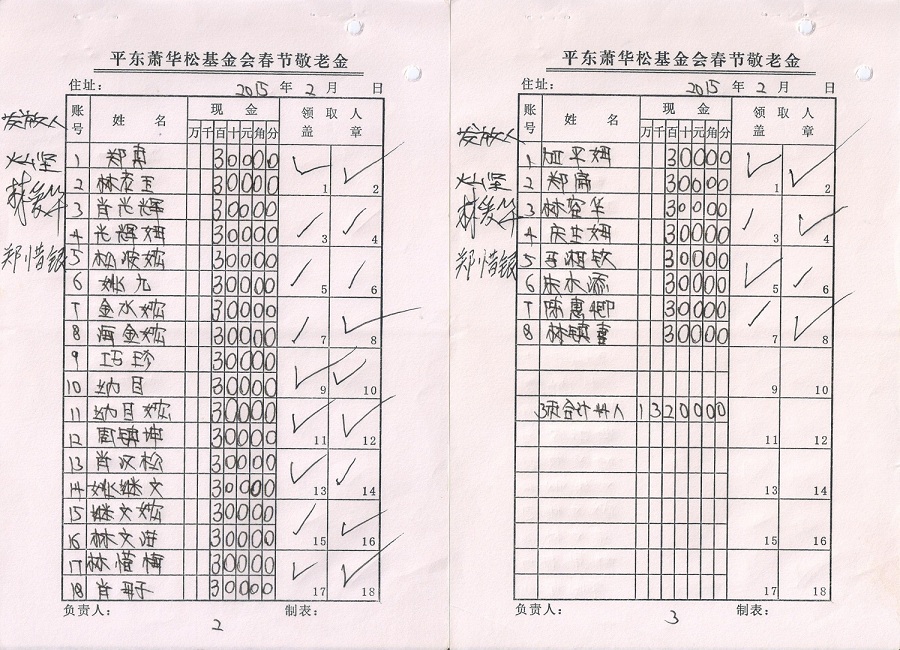 平东萧华松基金会春节敬老金
住址： 2015 年 2 月 日
账号 姓名 现金 领取人盖章
万 千 百 十 元 角 分
发放人
1 郑真 30000 1 2
灿坚
2 林 玉 30000
3 肖光辉 30000 3 4
4 光辉姆 30000
郑惜银
5 松波嫔 30000 5 6
6 姚九 30000
7 金水嫔 30000 7 8
8 海金嫔 30000
9 巧珍 30000 9 10
10 纳目 30000
11 纳目嫔 30000 11 12
12 周镇坤 30000
13 肖汉松 30000 13 14
14 姚继文 30000
15 继文嫔 30000 15 16
16 林文进 30000
17 林惜梅 30000 17 18
18 肖 30000
负责人： 制表：
2
平东萧华松基金会春节敬老金
住址： 2015 年 2 月 日
账号 姓名 现金 领取人盖章
万 千 百 十 元 角 分
发放人
1 平姆 30000 1 2
灿坚
2 郑 30000
3 林 华 30000 3 4
4 庆生姆 30000
郑惜银
5 湘钦 30000 5 6
6 水添 30000
7 陈惠卿 30000 7 8
8 林镇喜 30000
9 10
3页合计44人 1320000
11 12
13 14
15 16
17 18
负责人： 制表：
3